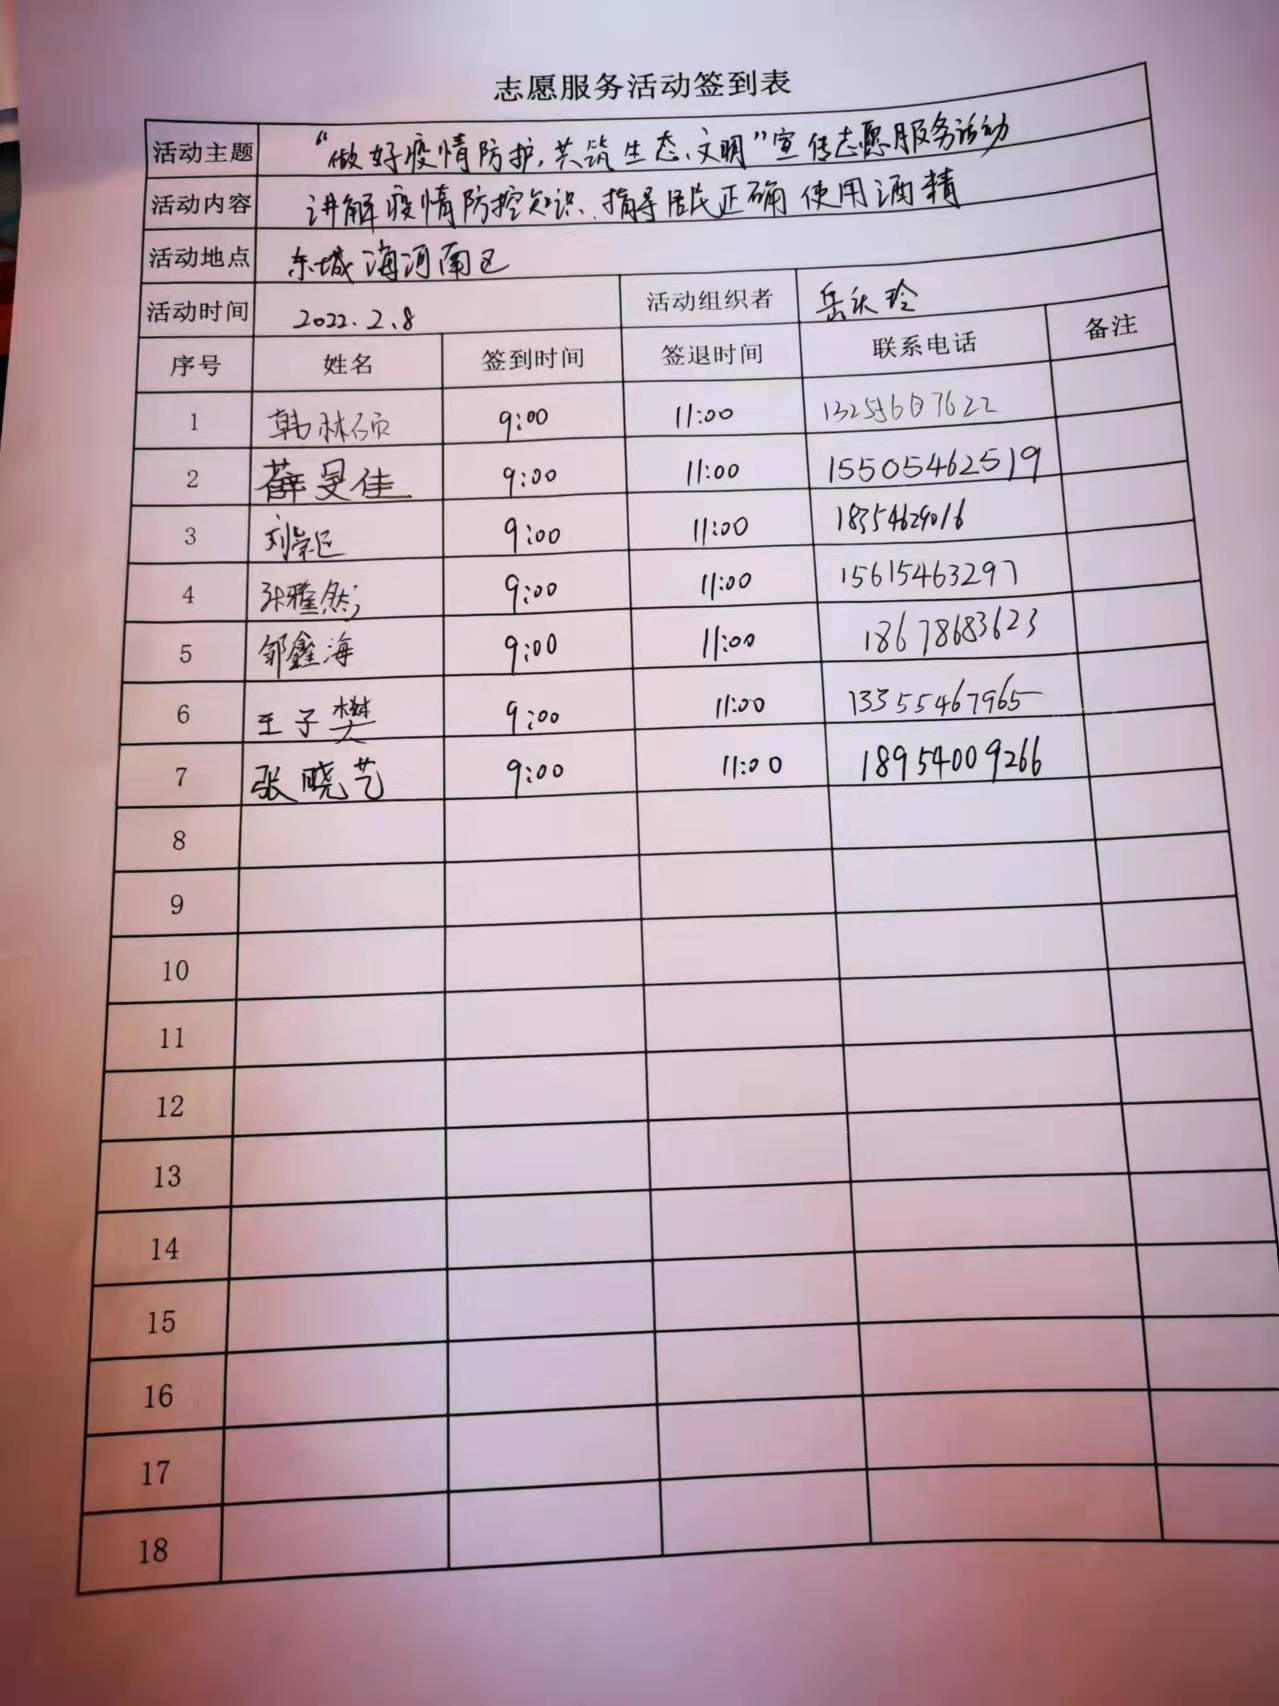 志愿服务活动签到表
活动主题 “做好疫情防护,共筑生态文明”宣传志愿服务活动
活动内容 讲解疫情防控知识、指导居民正确使用酒精
活动地点 东城海河南区
活动时间 2022.2.8 活动组织者 岳庆玲
序号 姓名 签到时间 签退时间 联系电话 备注
1 韩林硕 9:00 11:00
2 薛旻佳 9:00 11:00 15505462519
3 刘 9:00 11:00 18354629016
4 张雅然 9:00 11:00 15615463297
5 邹鑫海 9:00 11:00 18678683623
6 王子樊 9:00 11:00 13355467965
7 张晓艺 9:00 11:00 18954009266
8
9
10
11
12
13
14
15
16
17
18